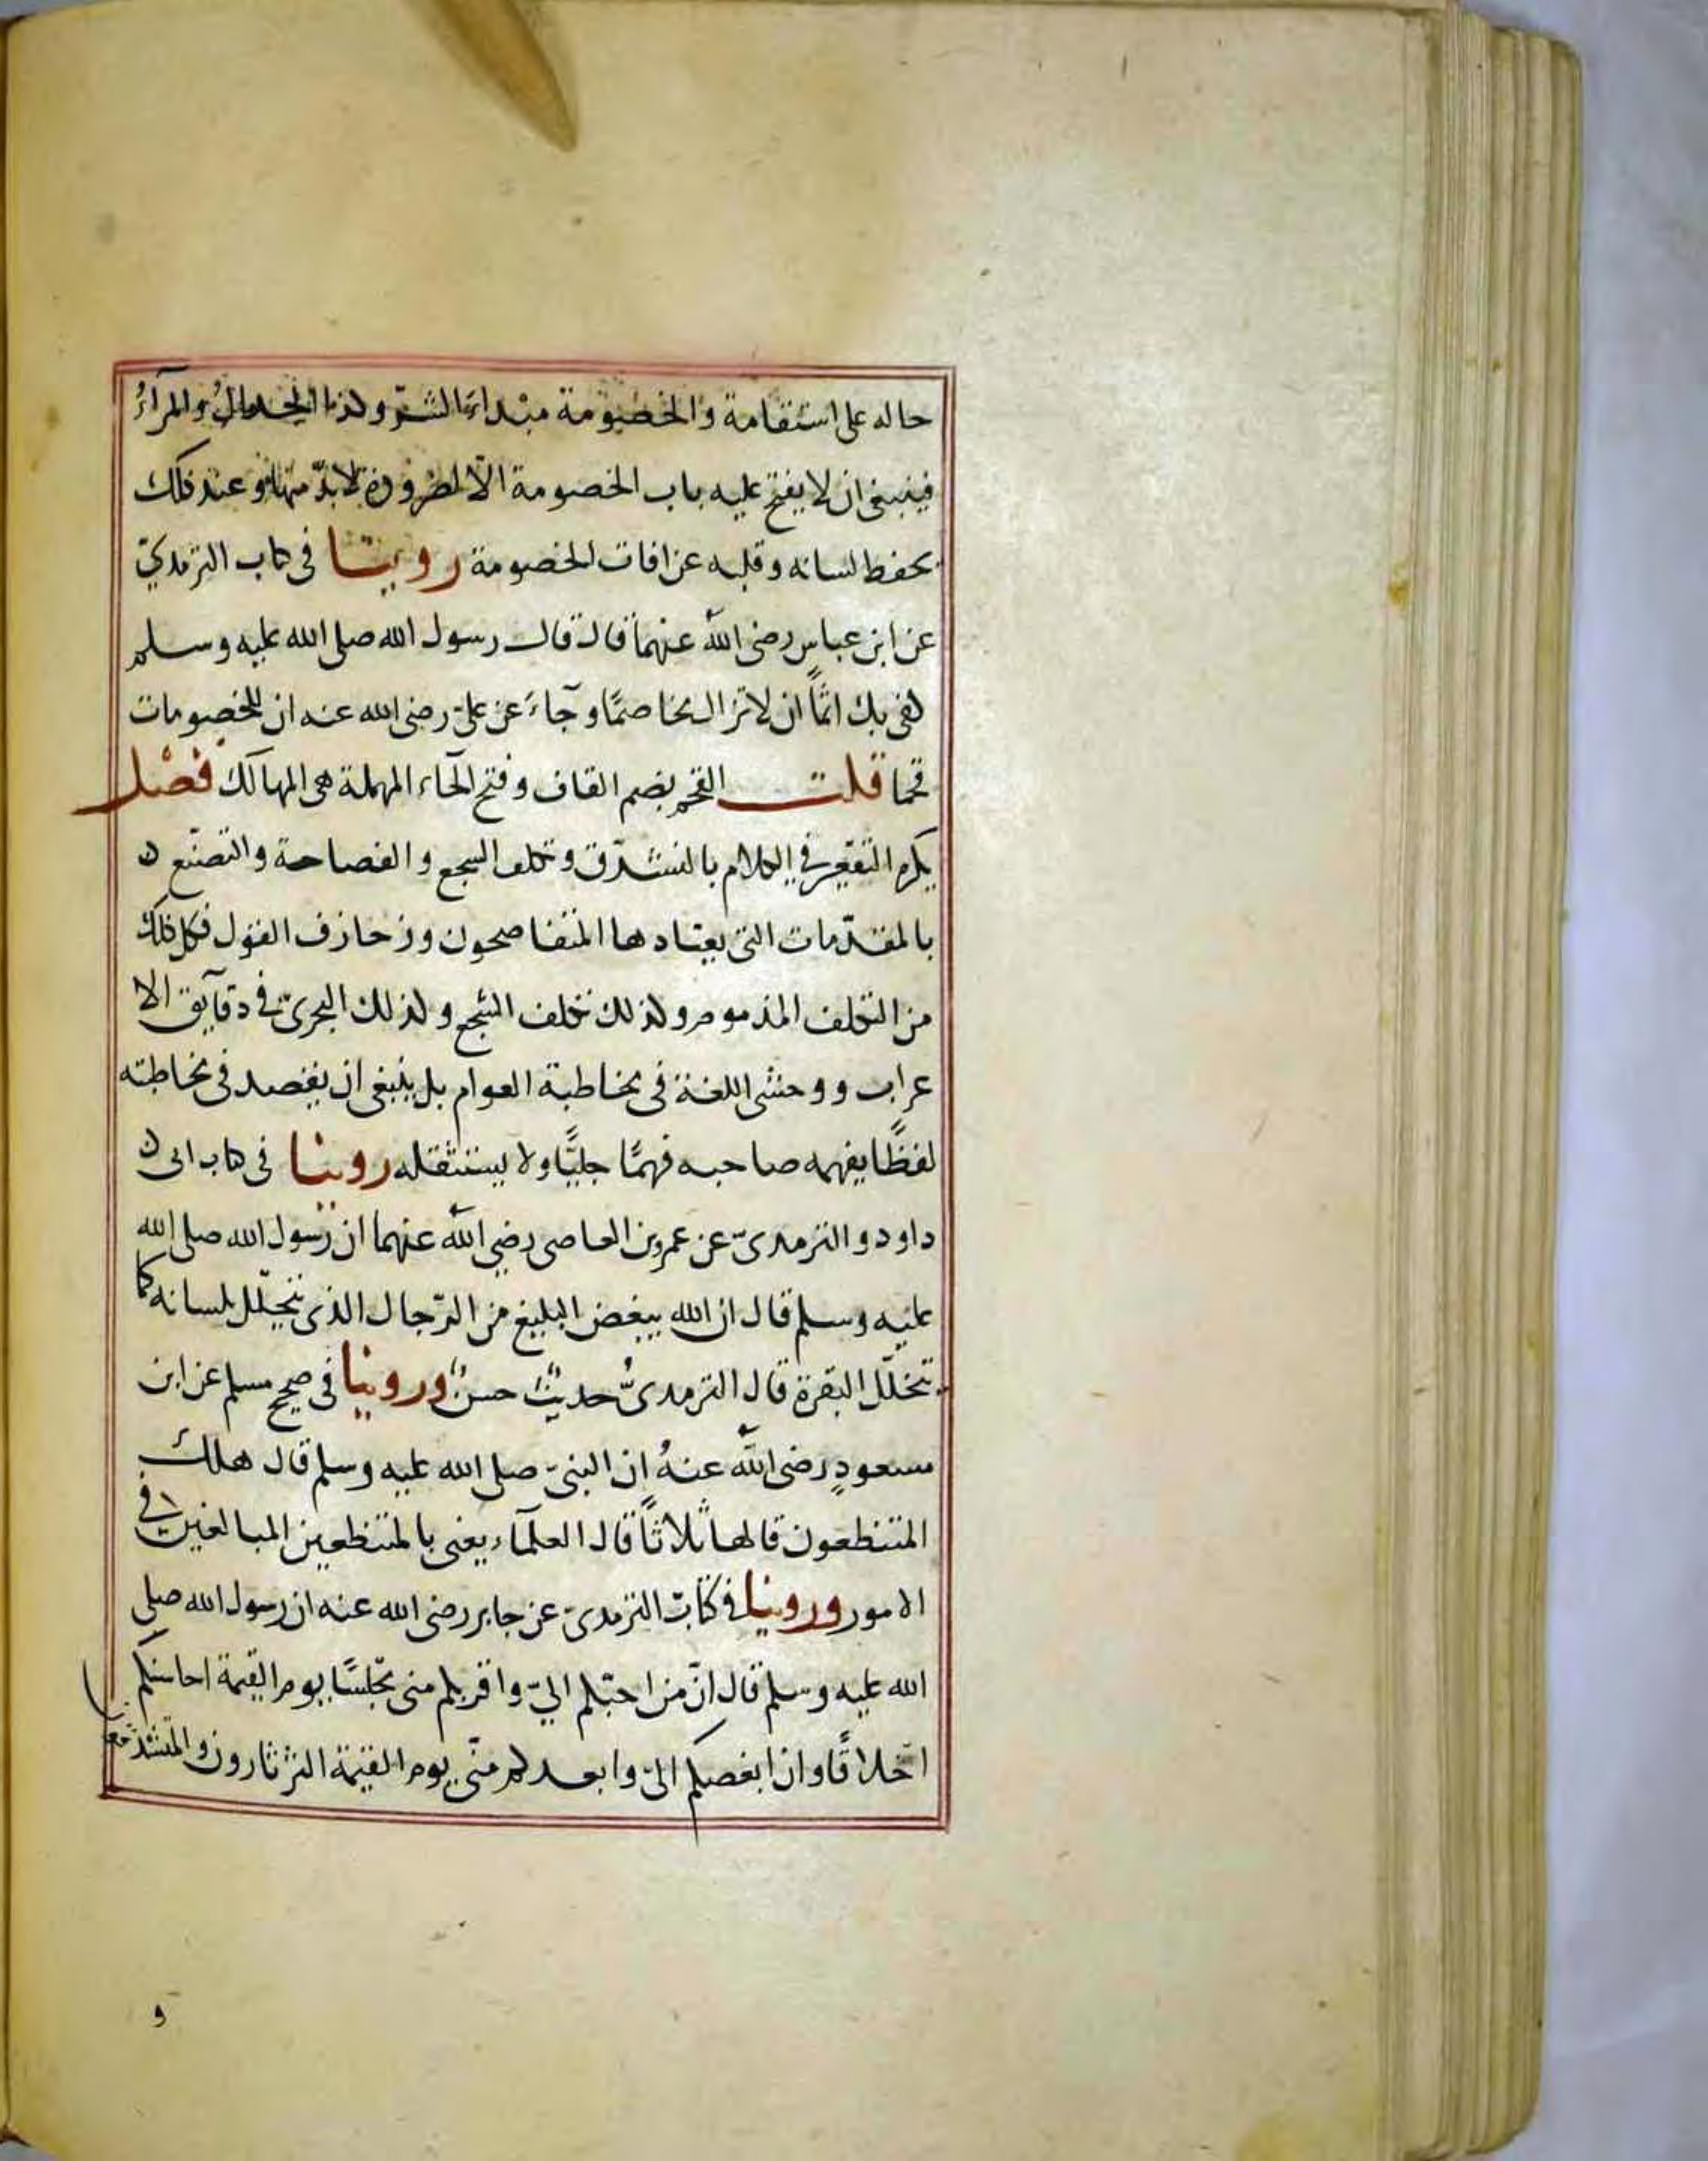 حاله على استقامة والخصومة مبداء الشر وكذا الجدال والمرآءُ
فينبغى ان لا يفتح عليه باب الخصومة الا لضرورة لابدّ منها وعند ذلك
يحفظ لسانه وقلبه عن افات الخصومة روينا فى كتاب الترمذيّ
عن ابن عباس رضى الله عنهما قال قال رسول الله صلى الله عليه وسلم
كفى بك اثمًا ان لا تزال مخاصمًا وجآءَ عن علىّ رضى الله عنه ان للخصومات
قحما قلت القحم بضم القاف وفتح الحاء المهملة هى المهالك فصْل
يكره التقعّير في الكلام بالتشدّق وتكلف السجع والفصاحة والتصنّع
بالمقدّمات التى يعتادها المتفاصحون وزخارف القول فكل ذلك
من التكلف المذموم وكذلك تكلف السّجع وكذلك التحرىّ فى دقآيق الا
عراب ووحشى اللغة فى مخاطبة العوام بل ينبغى ان يقصد فى مخاطبته
لفظًا يفهمه صاحبه فهمًا جليًّا ولا يستثقله روينا فى كتاب ابى
داود والترمذىّ عن عمرو بن العاصى رضي الله عنهما ان رسول الله صلى الله
عليه وسلم قال ان الله يبغض البليغ من الرّجال الذى يتخلّل بلسانه كما
تتخلّل البقرة قال الترمذىُّ حديثٌ حسنٌ وروينا فى صحيح مسلم عن ابن
مسعودٍ رضى الله عنهُ ان النبىّ صلى الله عليه وسلم قال هلك
المتنطعون قالها ثلاثًا قال العلمآء يعنى بالمتنطعين المبالغين فى
الامور وروينا فى كتاب الترمذىّ عن جابر رضى الله عنه ان رسول الله صلى
الله عليه وسلم قال انّ من احبّكم الىّ واقربكم منى مجلسًا يوم القيمة احاسنكم
اخلاقًا وان ابغضكم الىّ وابعدكم منّى يوم القيمة الثرثارون والمتشدقو
و